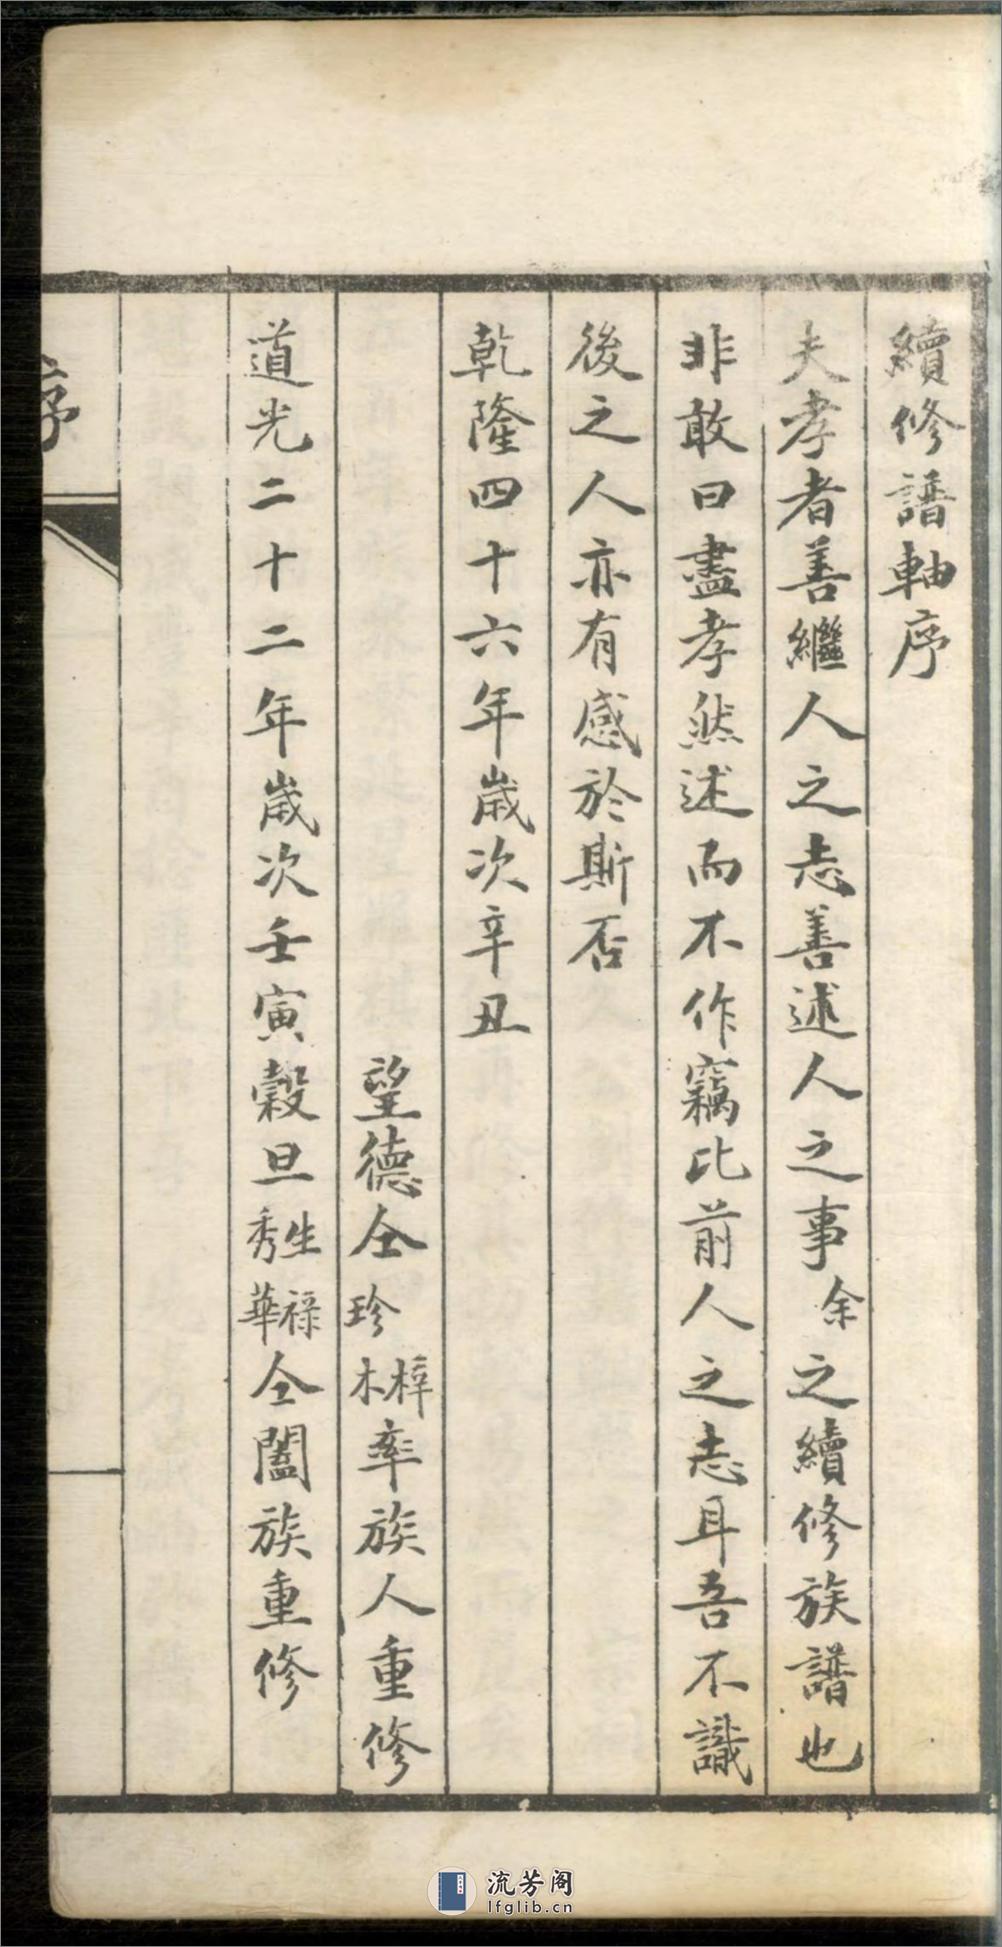 續修譜軸序
夫孝者善繼人之志善述人之事余之續修族譜也
非敢曰盡孝然述而不作竊比前人之志耳吾不識
後之人亦有感於斯否
乾隆四十六年歲次辛丑
望德仝珍梓木率族人重修
道光二十二年歲次壬寅穀旦生祿秀華仝闔族重修
序
流芳阁
lfglib.cn